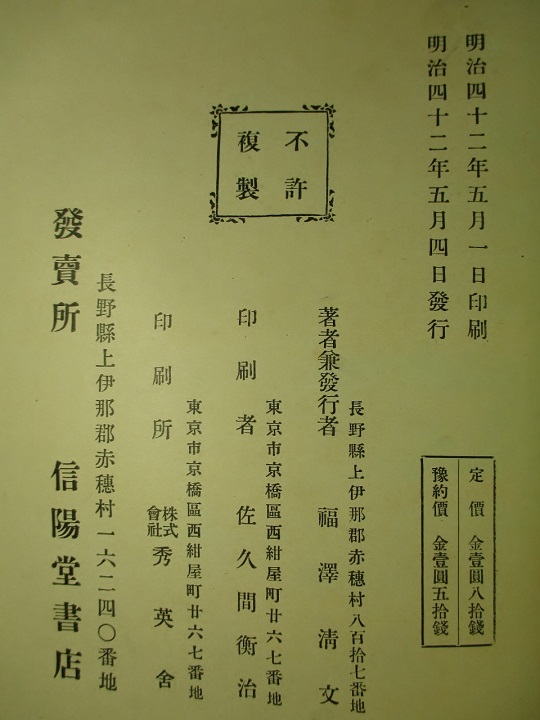 明治四十二年五月一日印刷
明治四十二年五月四日發行
定價 金壹圓八拾錢
豫約價 金壹圓五拾錢
不許
複製
長野縣上伊那郡赤穗村八百拾七番地
著者兼發行者 福澤淸文
東京市京橋區西紺屋町廿六七番地
印刷者 佐久間衡治
東京市京橋區西紺屋町廿六七番地
印刷所 株式會社 秀英舍
長野縣上伊那郡赤穗村一六二四〇番地
發賣所 信陽堂書店